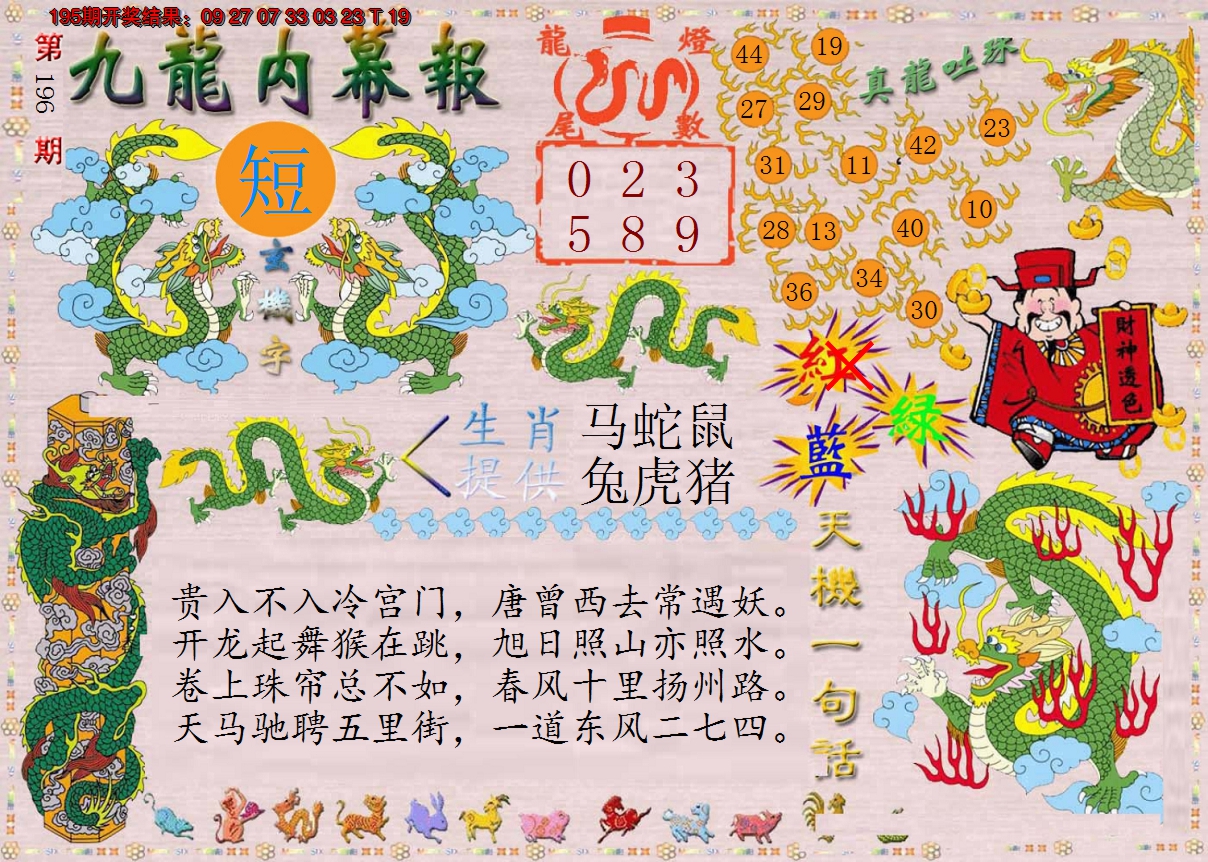 195期开奖结果：09 27 07 33 03 23 T 19
第196期
九龍内幕報
短
玄機字
龍燈尾數
0 2 3
5 8 9
44 19
27 29
31 11 42 23
28 13 40 10
36 34 30
真龍吐珠
紅
綠
藍
財神透色
生肖提供
马蛇鼠
兔虎猪
天機一句话
贵入不入冷宫门，唐曾西去常遇妖。
开龙起舞猴在跳，旭日照山亦照水。
卷上珠帘总不如，春风十里扬州路。
天马驰聘五里街，一道东风二七四。